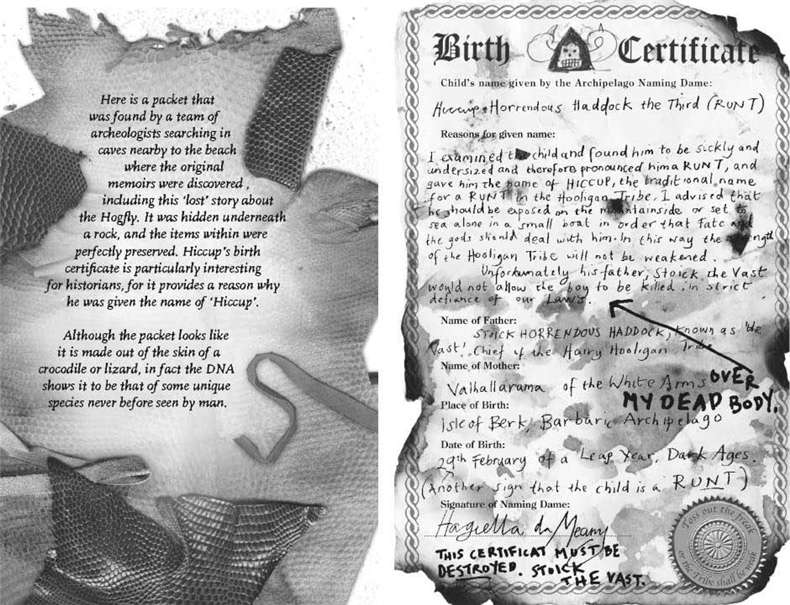 Here is a packet that
was found by a team of
archeologists searching in
caves nearby to the beach
where the original
memoirs were discovered ,
including this 'lost' story about
the Hogfly. It was hidden underneath
a rock, and the items within were
perfectly preserved. Hiccup's birth
certificate is particularly interesting
for historians, for it provides a reason why
he was given the name of 'Hiccup'.
Although the packet looks like
it is made out of the skin of a
crocodile or lizard, in fact the DNA
shows it to be that of some unique
species never before seen by man.
Birth Certificate
Child's name given by the Archipelago Naming Dame:
Hiccup Horrendous Haddock the Third (RUNT)
Reasons for given name:
I examined the child and found him to be sickly and
undersized and therefore pronounced him a RUNT, and
gave him the name of HICCUP, the traditional name
for a RUNT in the Hooligan Tribe. I advised that
he should be exposed on the mountainside or set to
sea alone in a small boat in order that Fate and
the gods should deal with him. In this way the strength
of the Hooligan Tribe will not be weakened.
Unfortunately his father, Stoick the Vast
would not allow the boy to be killed, in strict
defiance of our Laws.
Name of Father:
STOICK HORRENDOUS HADDOCK, known as 'the
Vast', Chief of the Hairy Hooligan Tribe
Name of Mother:
Valhallarama of the White Arms
OVER
MY DEAD BODY.
Place of Birth:
Isle of Berk, Barbaric Archipelago
Date of Birth:
29th February of a Leap Year, Dark Ages.
(Another sign that the child is a RUNT)
Signature of Naming Dame:
Hagiella da Meany
THIS CERTIFICAT MUST BE
DESTROYED. STOICK
THE VAST.
Toss out the freak
or the Tribe shall be weak